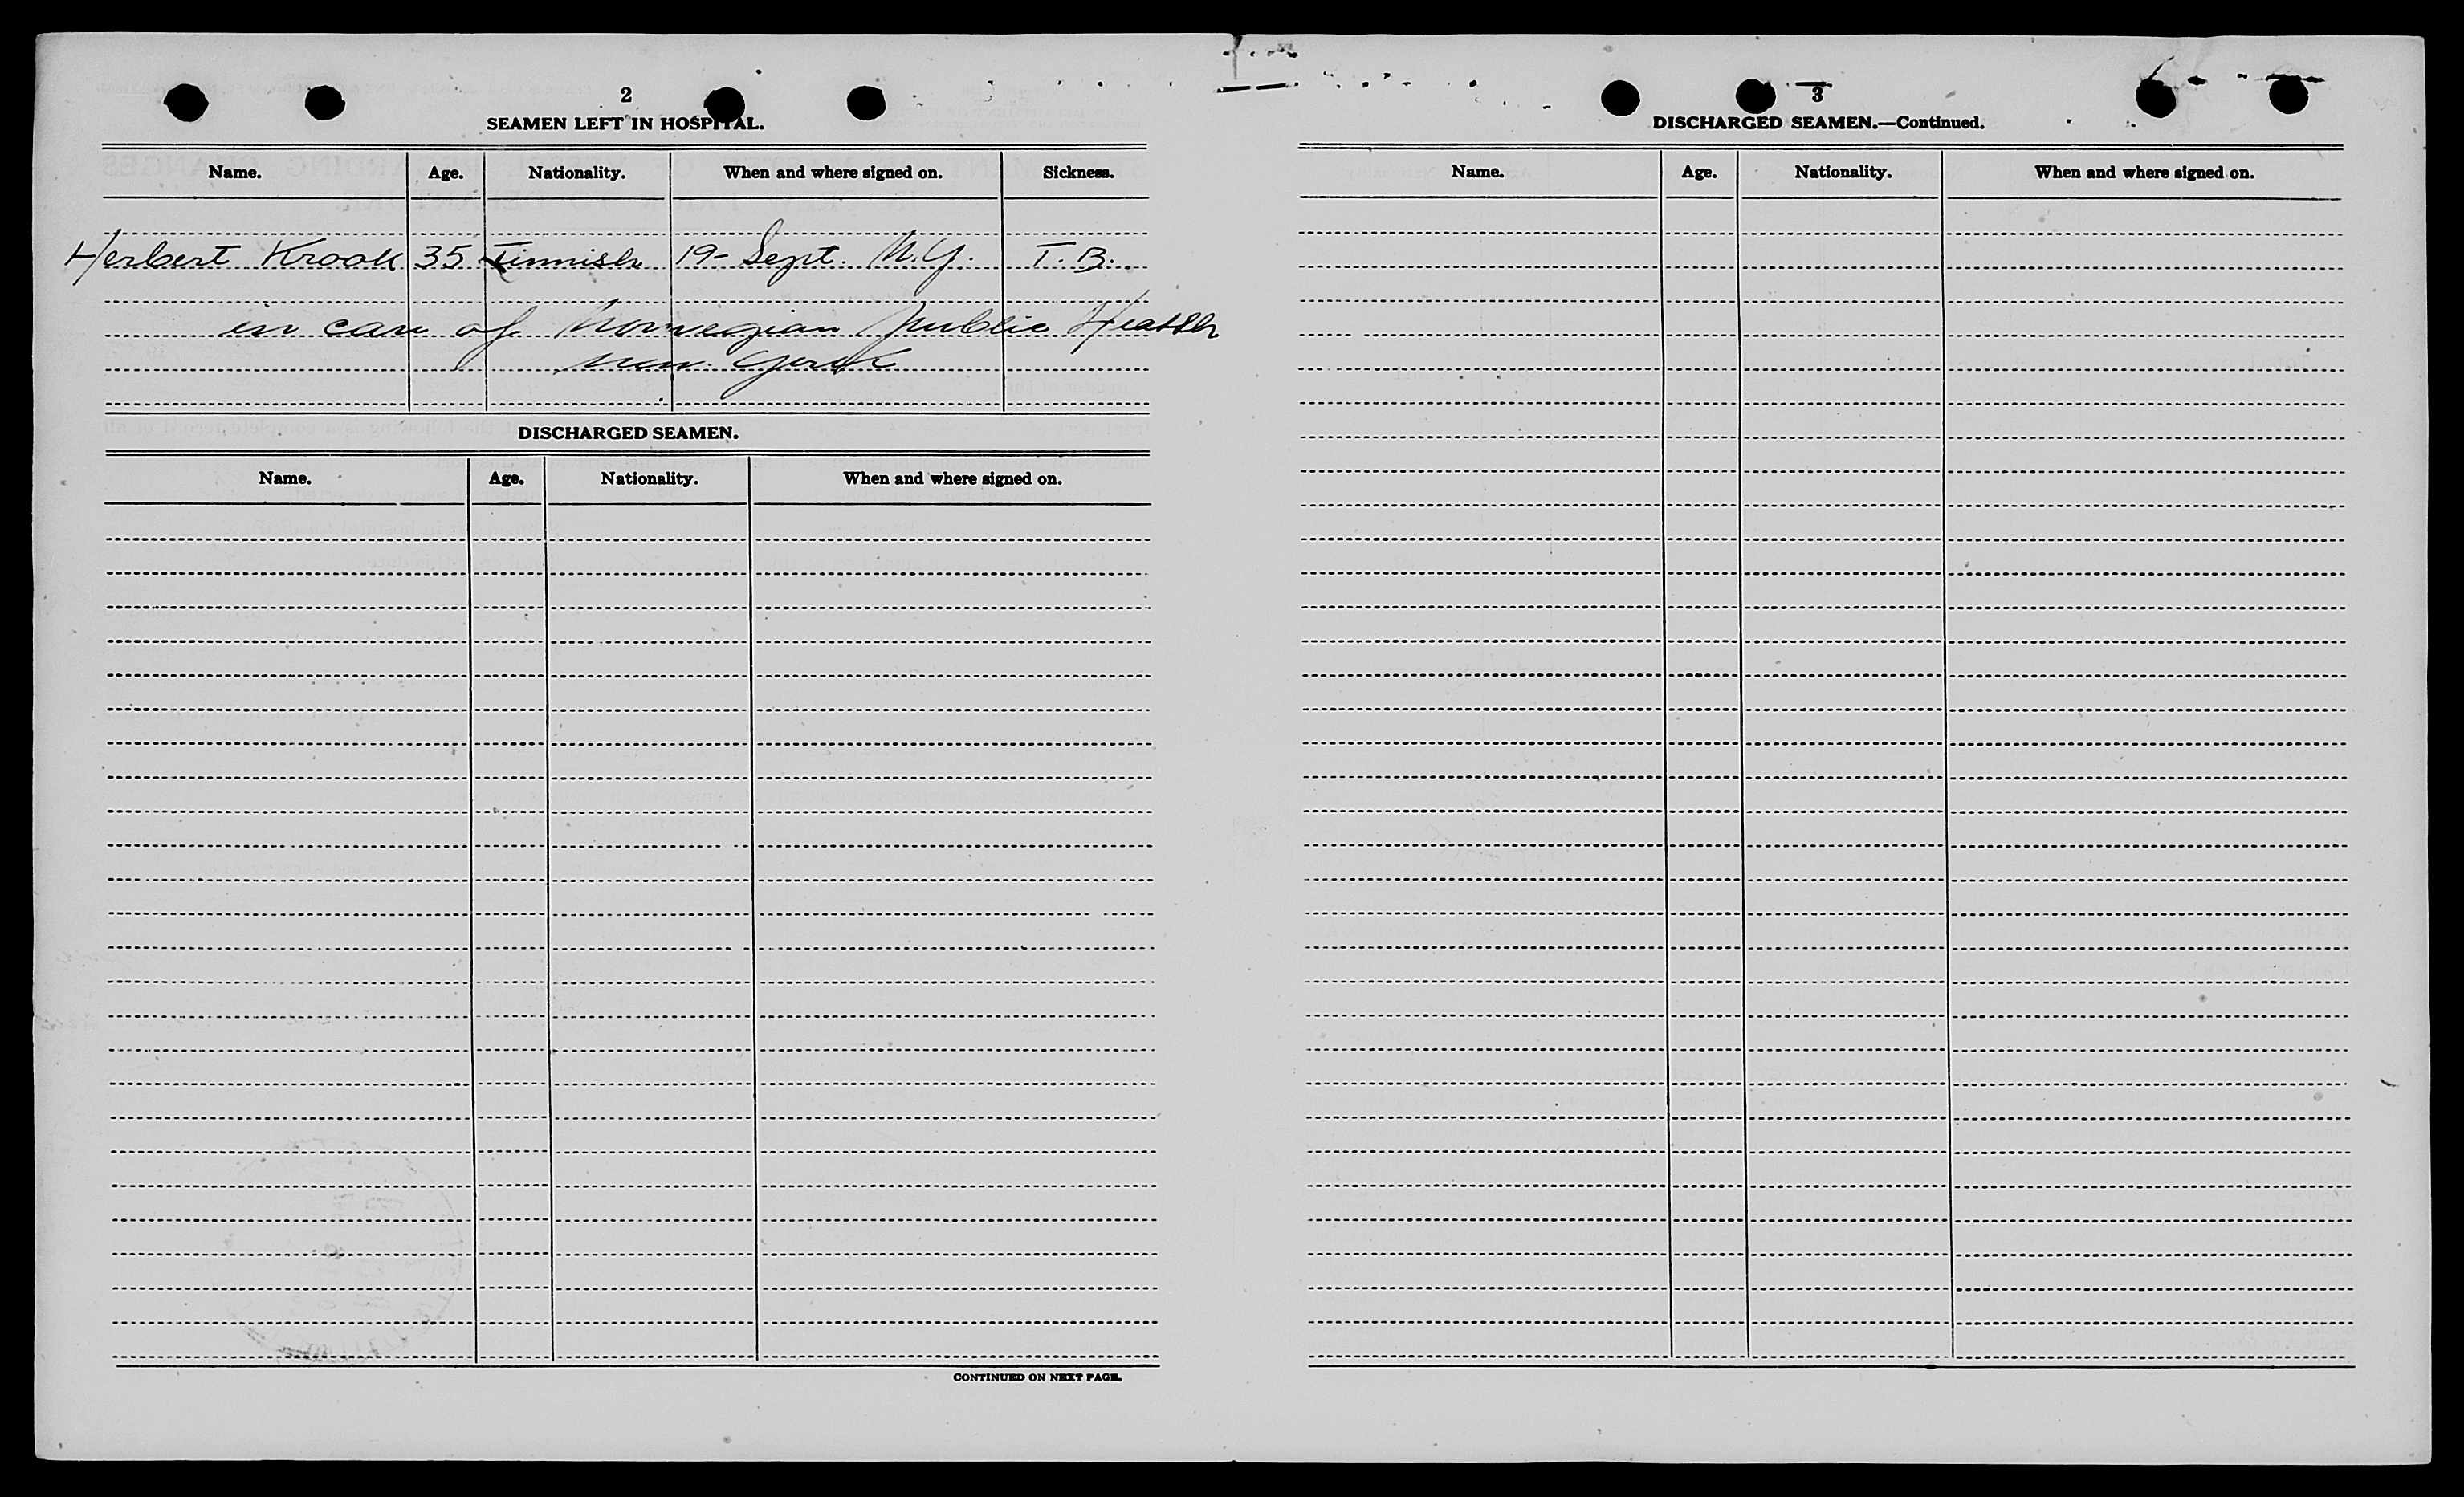 2
SEAMEN LEFT IN HOSPITAL.
Name. Age. Nationality. When and where signed on. Sickness.
Herbert Krook 35 Finnish 19- Sept. N.Y. T.B.
in care of Norwegian Public Health
New. York
DISCHARGED SEAMEN.
Name. Age. Nationality. When and where signed on.
CONTINUED ON NEXT PAGE.
3
DISCHARGED SEAMEN.—Continued.
Name. Age. Nationality. When and where signed on.